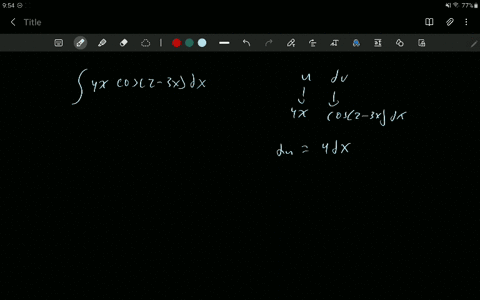 9:54
77%
Title
∫ 4x cos(2-3x) dx
u dv
↓ ↓
4x cos(2-3x) dx
du = 4dx